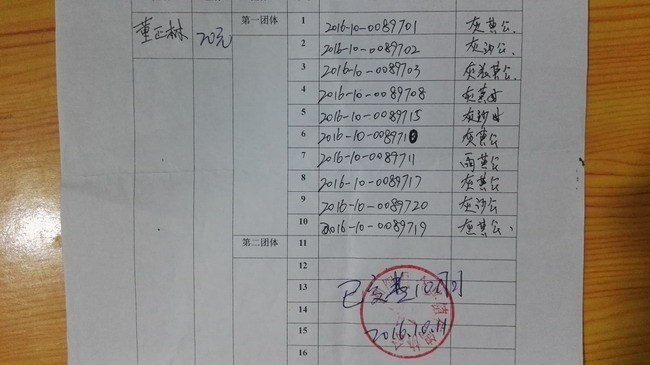 董正林 20元 第一团体 1 2016-10-0089701 灰黄公.
2 2016-10-0089702 灰沙公.
3 2016-10-0089703 灰黄公.
4 2016-10-0089708 灰黄
5 2016-10-0089715 灰沙
6 2016-10-008971 灰黄公
7 2016-10-0089711 雨黄公
8 2016-10-0089717 灰黄公
9 2016-10-0089720 灰沙公
10 2016-10-0089719 灰黄公
第二团体 11
12
13 已交
14
15 2016.10.11
16